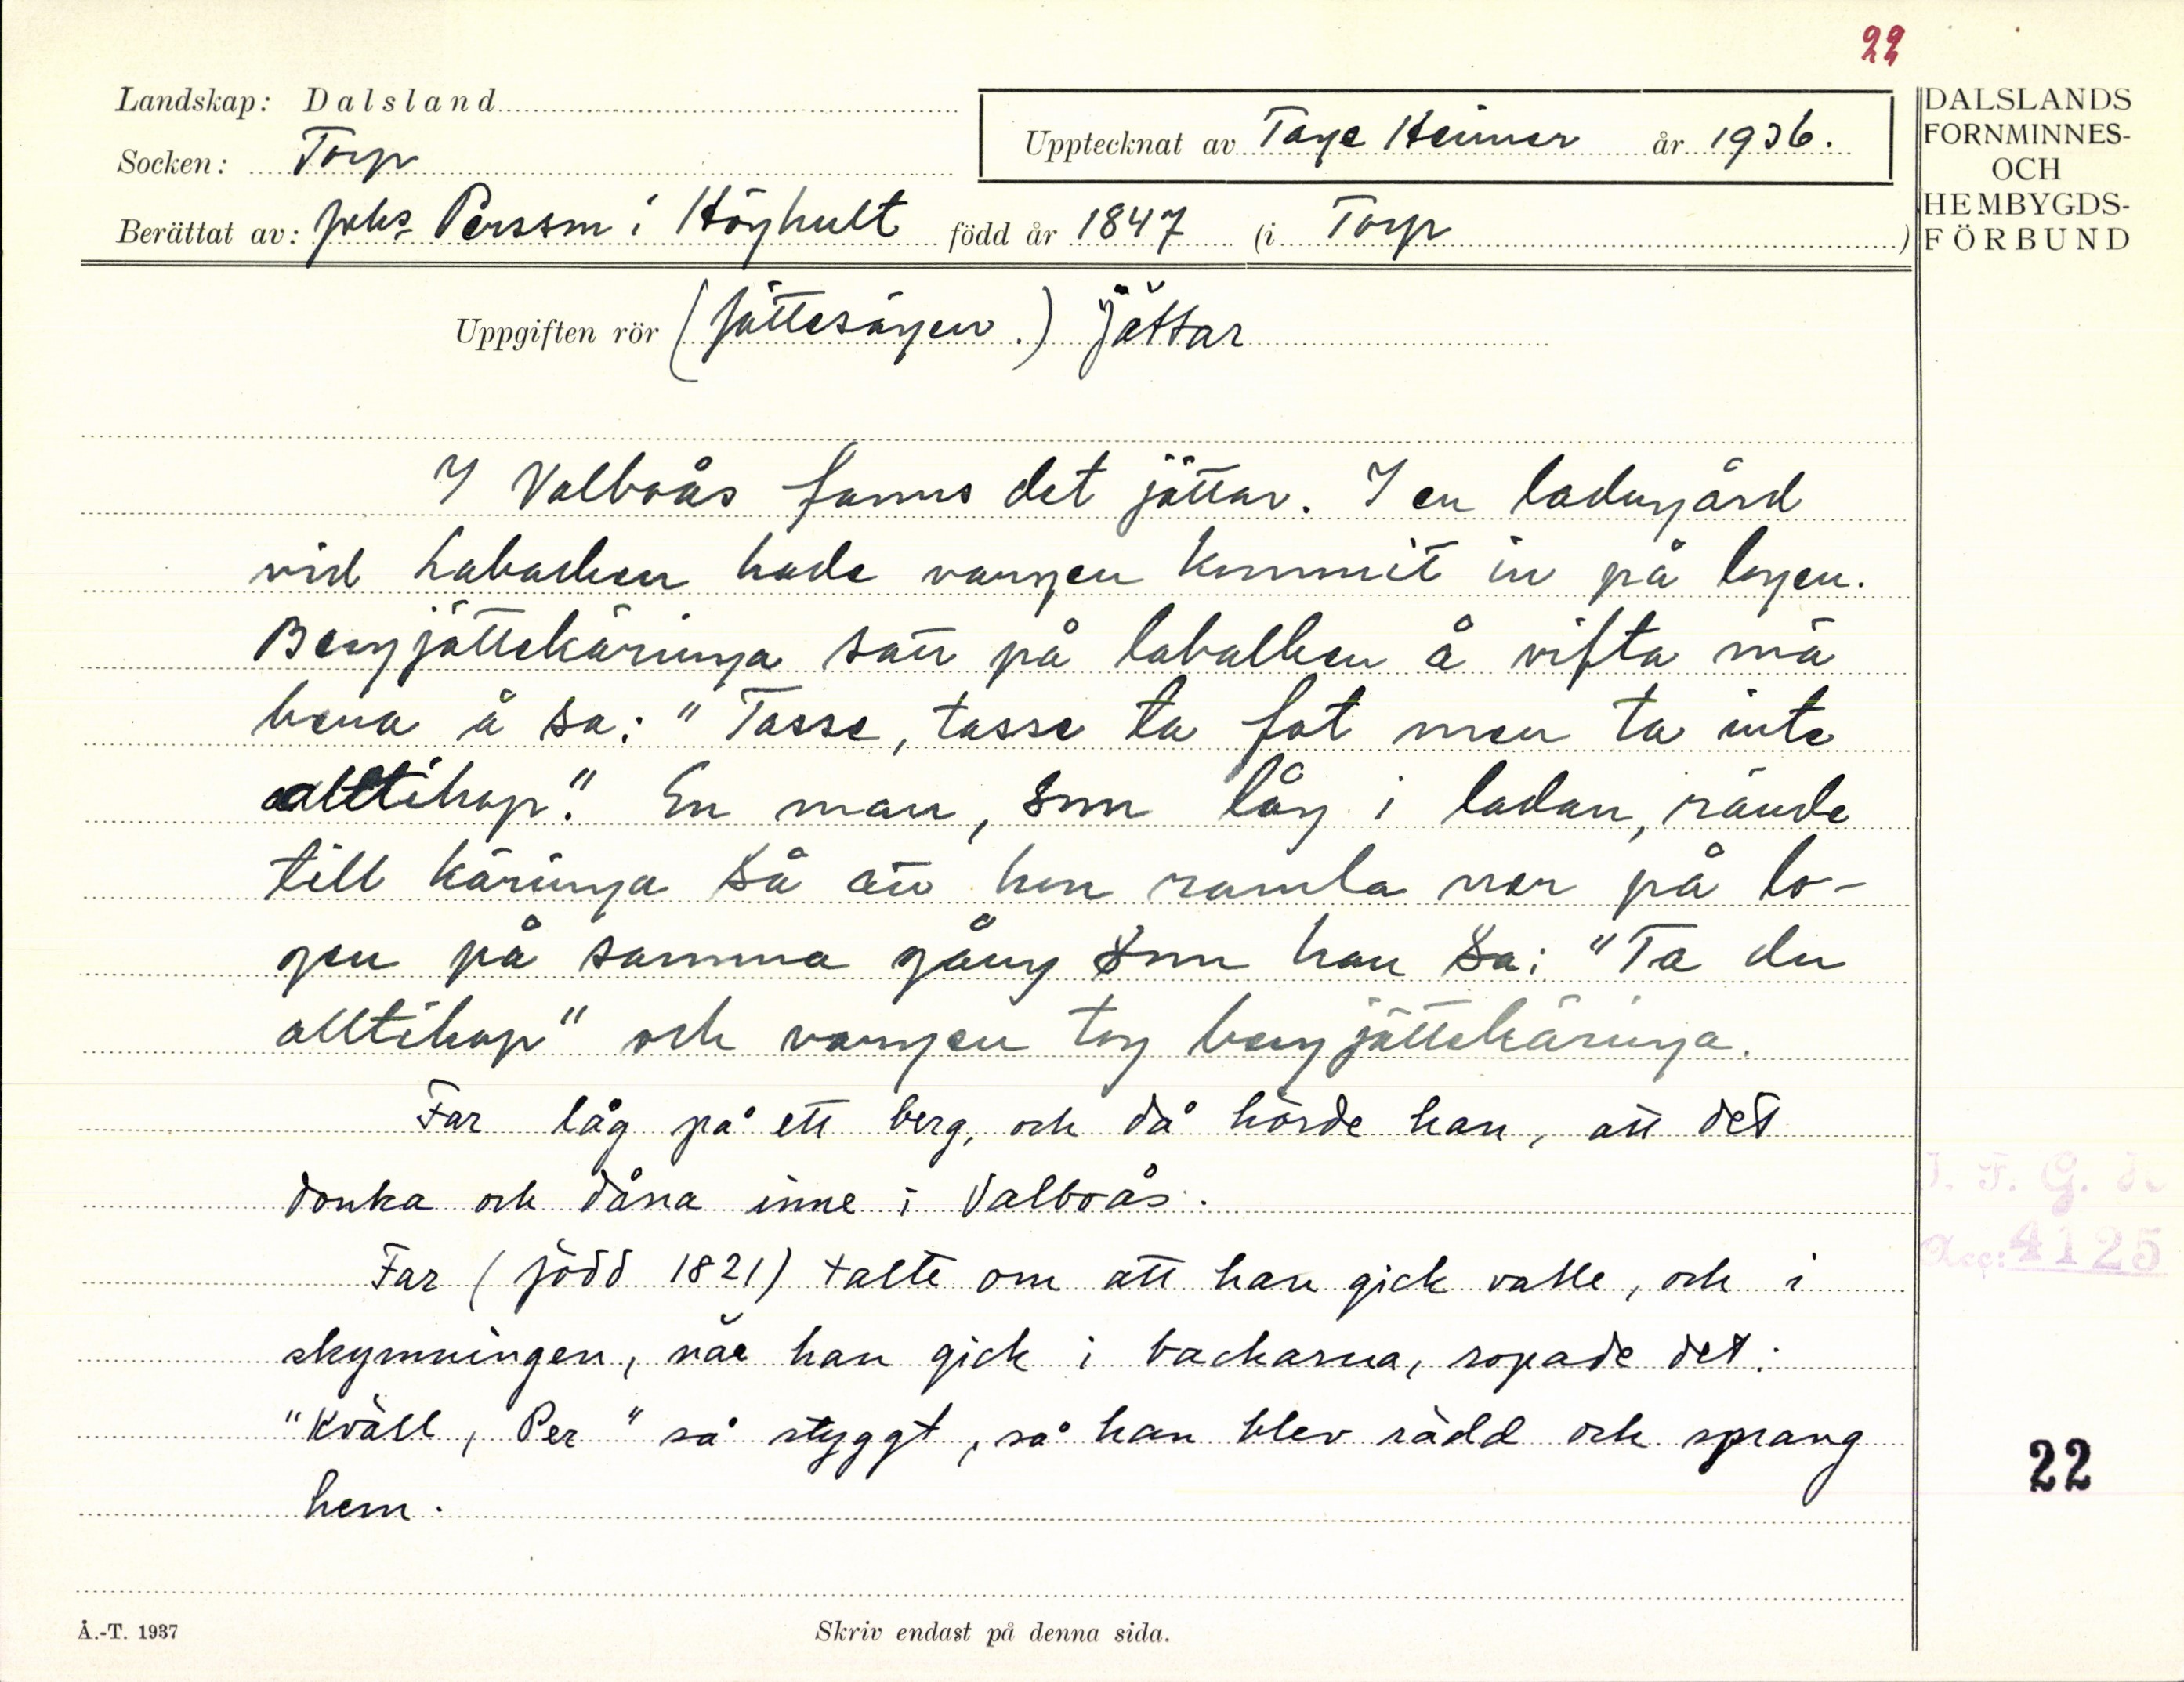 22
Landskap: Dalsland
Upptecknat av Tage Heimer år 1936.
Socken: Torp
Berättat av: Johs Persson i Höghult född år 1847 (i Torp)
DALSLANDS
FORNMINNES-
OCH
HEMBYGDS-
FÖRBUND
Uppgiften rör (Jättesägen.) Jättar
I Valboås fanns det jättar. I en ladugård
vid Labacken hade vargen kommit in på logen.
Bergjättekäringa satt på labalken å vifta mä
bena å sa: "Tasse, tasse ta fat men ta inte
alltihop." En man, som låg i ladan, rände
till käringa så att hon ramla ner på lo-
gen på samma gång som han sa: "Ta du
alltihop" och vargen tog bergjättekäringa.
Far låg på ett berg, och då hörde han, att det
donka och dåna inne i Valboås.
Far (född 1821) talte om att han gick valle, och i
skymningen, när han gick i backarna, ropade det:
"Kväll, Per" så styggt, så han blev rädd och sprang
hem.
I. F. G. 
Acc: 4125
22
Å.-T. 1937
Skriv endast på denna sida.